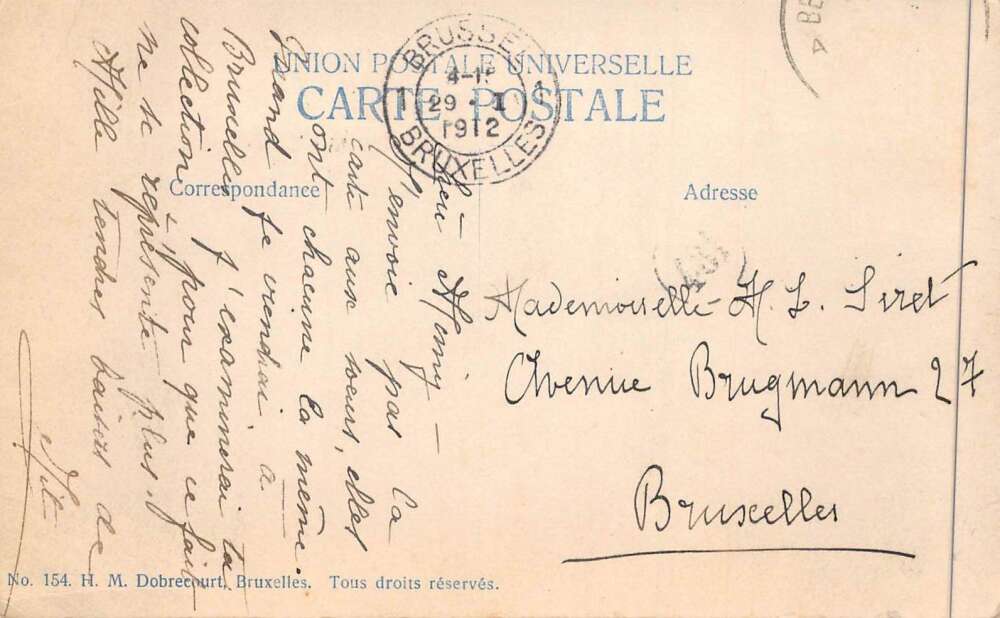 UNION POSTALE UNIVERSELLE
CARTE POSTALE
BRUSSEL
1 1
29 · I
1912
BRUXELLES
Correspondance
Adresse
Mademoiselle H. L. Siret
Avenue Brugmann 27
Bruxelles
j'envoie pas la
carte aux sœurs, elles
ont chacune la même.
Quand je viendrai à
Bruxelles j'examinerai ta
collection, pour que ce fait
ne se représente plus.
Mille tendres baisers de
No. 154. H. M. Dobrecourt, Bruxelles. Tous droits réservés.